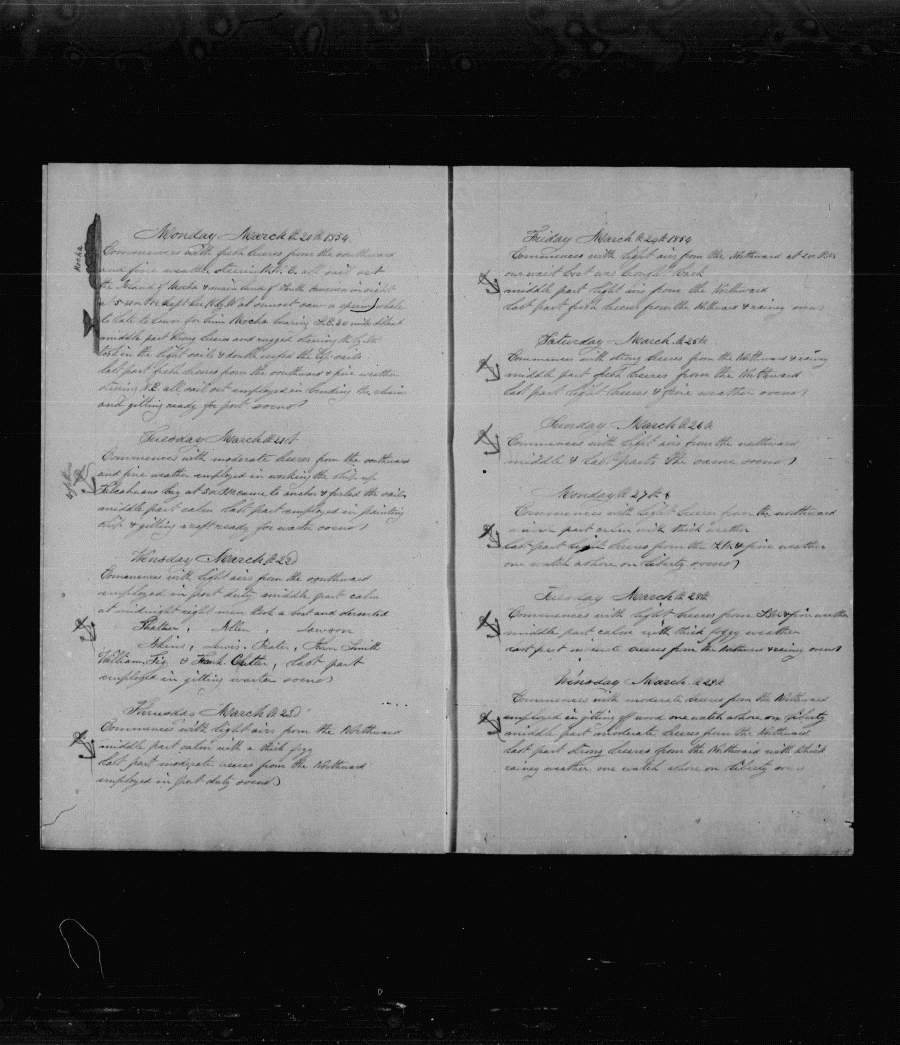 Monday March th 20th 1854
Mocha
Commences with fresh breses from the southward
and fine weather steerin N. E. all sail set
the Island of Mocha & main land of South America in sight
at 5 at sunset saw a sperm whale
to late to lower for him Mocha bearing S.E. 20 miles distant
middle part strong breses and rugged
took in the light sails & double reefed the top sails
last part fresh breses from the southward & fine weather
steerin N.E. all sail out employed in bending the chains
and gitting ready for port so ends
Tuesday March th 21st
Commences with moderate breses from the southward
and fine weather employed in working the ship up
Talcahuano bay at 5 PM came to anchor & furled the sails
middle part calm last part employed in painting
ship & gitting raft ready for water so ends
Wensday March th 22d
Commences with light airs from the southward
employed in port duty middle part calm
at midnight eight men took a boat and deserted
Allen , Lawson
Lewis , John Smith
William & Frank Cutter , last part
employed in gitting warter so ends
Thursday March th 23d
Commences with light airs from the Northward
middle part calm with a thick fogg
last part moderate breses from the Northward
employed in port duty so ends
Friday March th 24th 1854
Commences with light airs from the Northward at 2
our waist boat was brought back
middle part light airs from the Northward
last part fresh breses from the Northward & rainy so ends
Saturday March th 25th
Commences with strong breses from the Northward & rainy
middle part fresh breses from the Northward
last part light breses & fine weather so ends
Sunday March th 26th
Commences with light airs from the northward
middle & last parts the same so ends
Monday th 27th
Commences with light breses from the northward
middle part calm with thick weather
last part light breses from the S.W. & fine weather
one watch ashore on liberty so ends
Tuesday March th 28th
Commences with light breses from S.W. & fine weather
middle part calm with thick foggy weather
last part moderate breses from the Northward & rainy so ends
Wensday March th 29th
Commences with moderate breses from the Northward
employed in gitting of wood one watch ashore on liberty
middle part moderate breses from the Northward
last part strong breses from the Northward with thick
rainey weather one watch ashore on liberty so ends